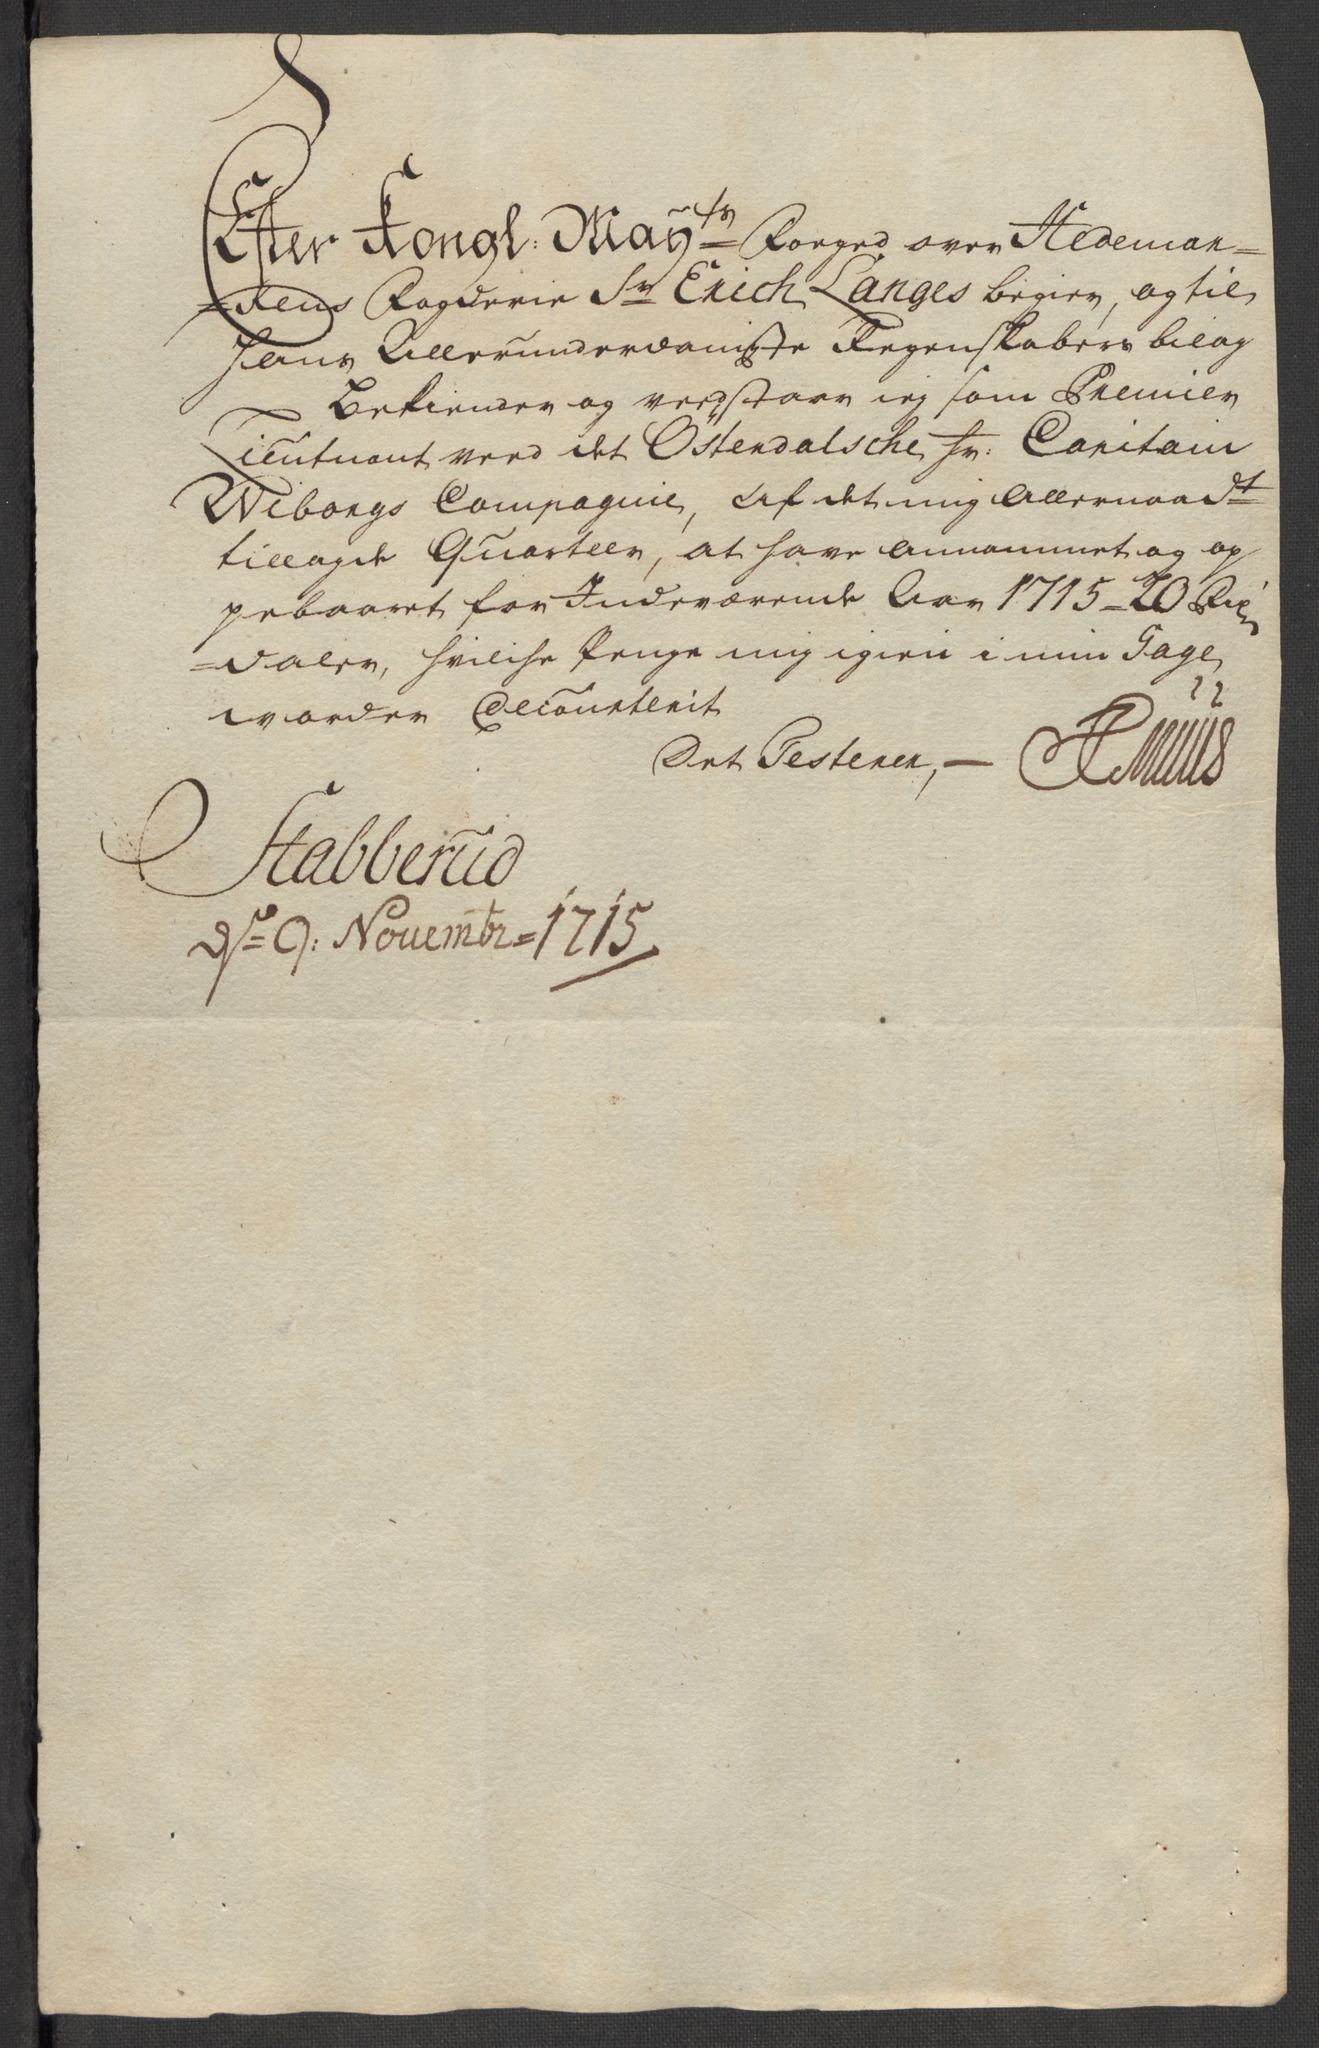 Efter Kongl: Mayts Foeged over Hedemar=
=kens Fogderie Sr Erich Langes begier, og til
hans Allerunderdanigste Regenskabers bilag
Bekiender og reedstaar ieg som Premier
Lieutnant veed det Østerdalsche hr: Capitain
Wiborgs Compagnie, Af det mig Allernaadt
tillagde Quarteer, at have Annammet og op
pebaaret for Indeværende Aar 1715 = 20 Rix
=daler, hvilche Penge mig igien i min Gage
vorder decourterit
Det Testerer, —
Stabberud
ds 9: Novembr = 1715